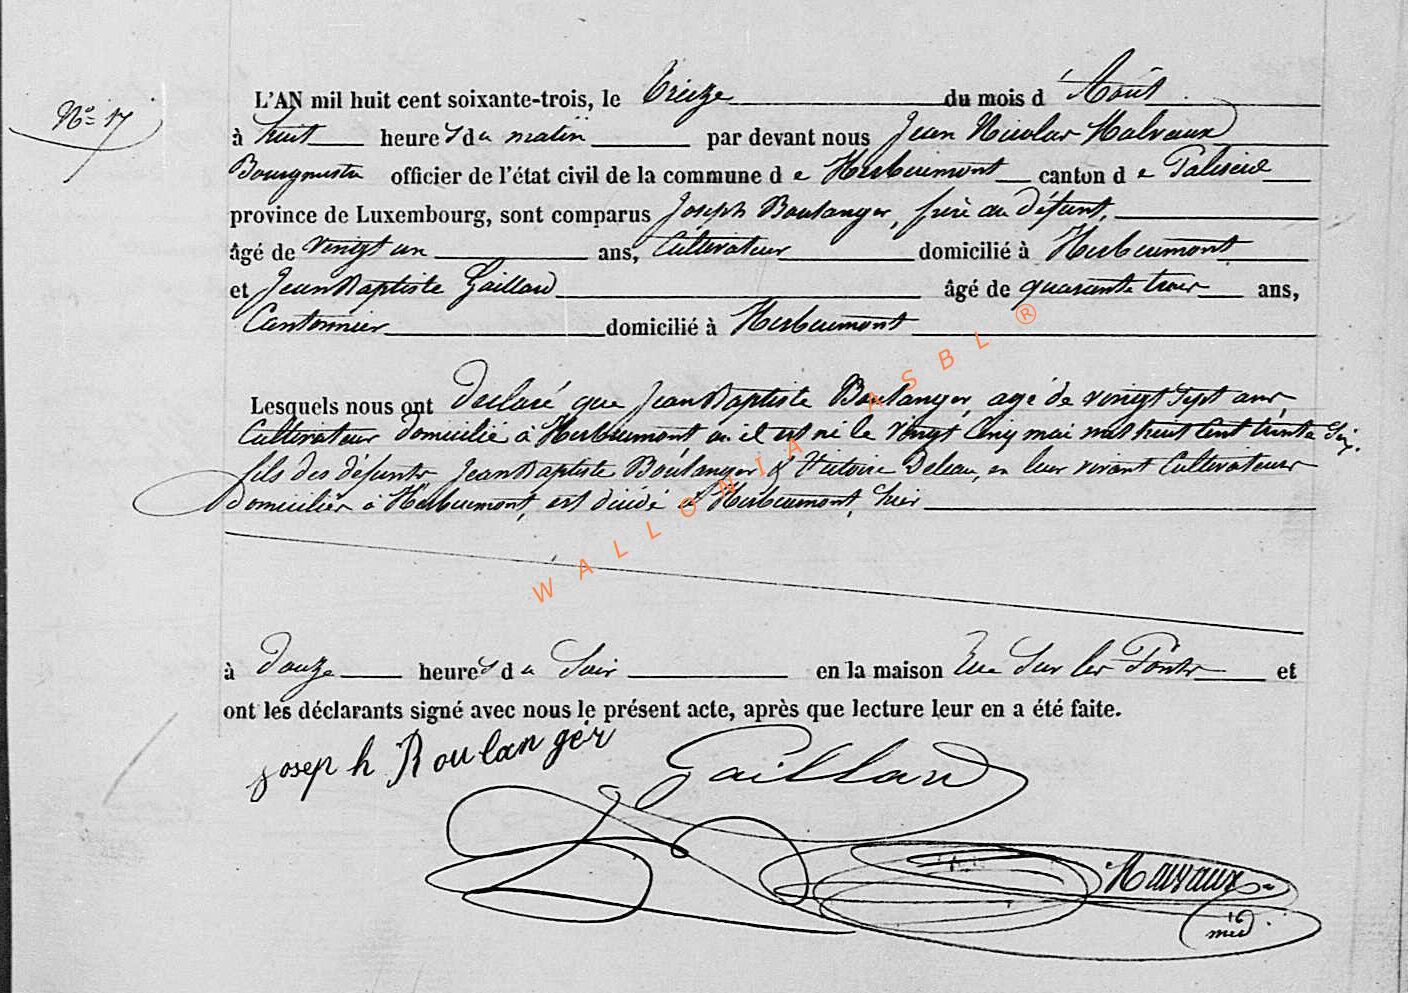 Nº 17
L'AN mil huit cent soixante-trois, le treize du mois d'Août
à huit heures du matin par devant nous Jean Nicolas Malvaux
Bourgmestre officier de l'état civil de la commune de Herbeumont canton de Paliseul
province de Luxembourg, sont comparus Joseph Boulanger, frère au défunt,
âgé de vingt un ans, Cultivateur domicilié à Herbeumont
et Jean Baptiste Gaillard âgé de quarante trois ans,
Cantonnier domicilié à Herbeumont
Lesquels nous ont declaré que Jean Baptiste Boulanger, agé de vingt sept ans
Cultivateur domicilié à Herbeumont où il est né le vingt cinq mai mil huit cent trente six,
fils des défunts Jean Baptiste Boulanger & Victoire Deleau, en leur vivant Cultivateurs
domiciliés à Herbeumont, est décédé à Herbeumont, hier
à douze heures du soir en la maison Rue Sur les Ponts et
ont les déclarants signé avec nous le présent acte, après que lecture leur en a été faite.
Joseph Boulanger
Gaillard
Malvaux
WALLONIA ASBL ®